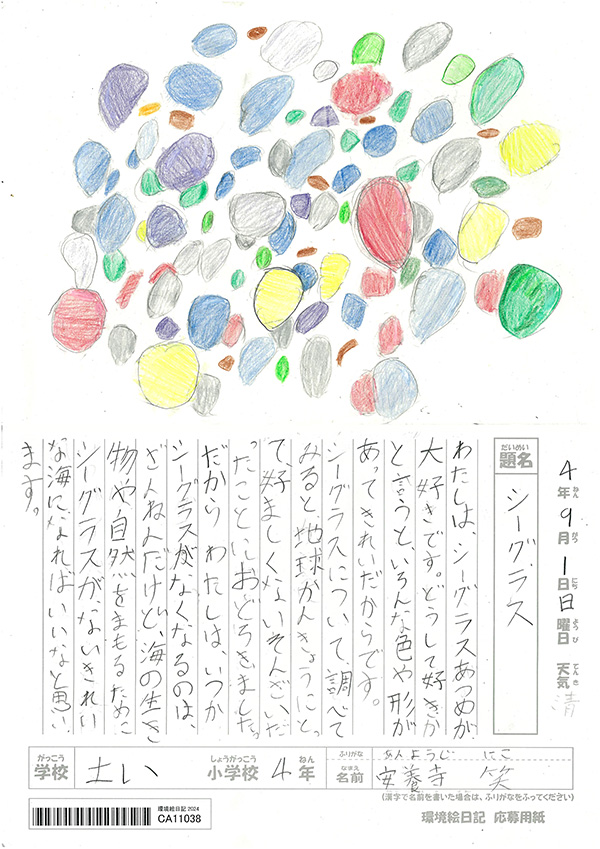 4年9月1日日曜日 天気 清
ねん がつ にち ようび てんき
だいめい
題名 シーグラス
わたしは、シーグラスあつめが
大好きです。どうして好きか
と言うと、いろんな色や形が
あってきれいだからです。
シーグラスについて、調べて
みると、地球かんきょうにとっ
て、好ましくないそんざいだ
ったことにおどろきました。
だから わたしは、いつか
シーグラスがなくなるのは、
ざんねんだけど、海の生き
物や自然をまもるために
シーグラスが、ないきれい
な海になればいいなと思い
ます。
がっこう しょうがっこう ねん
学校 土い 小学校 4年
ふりがな あんようじ にこ
なまえ
名前 安養寺 笑
(漢字で名前を書いた場合は、ふりがなをふってください)
環境絵日記 2024
CA11038
環境絵日記 応募用紙